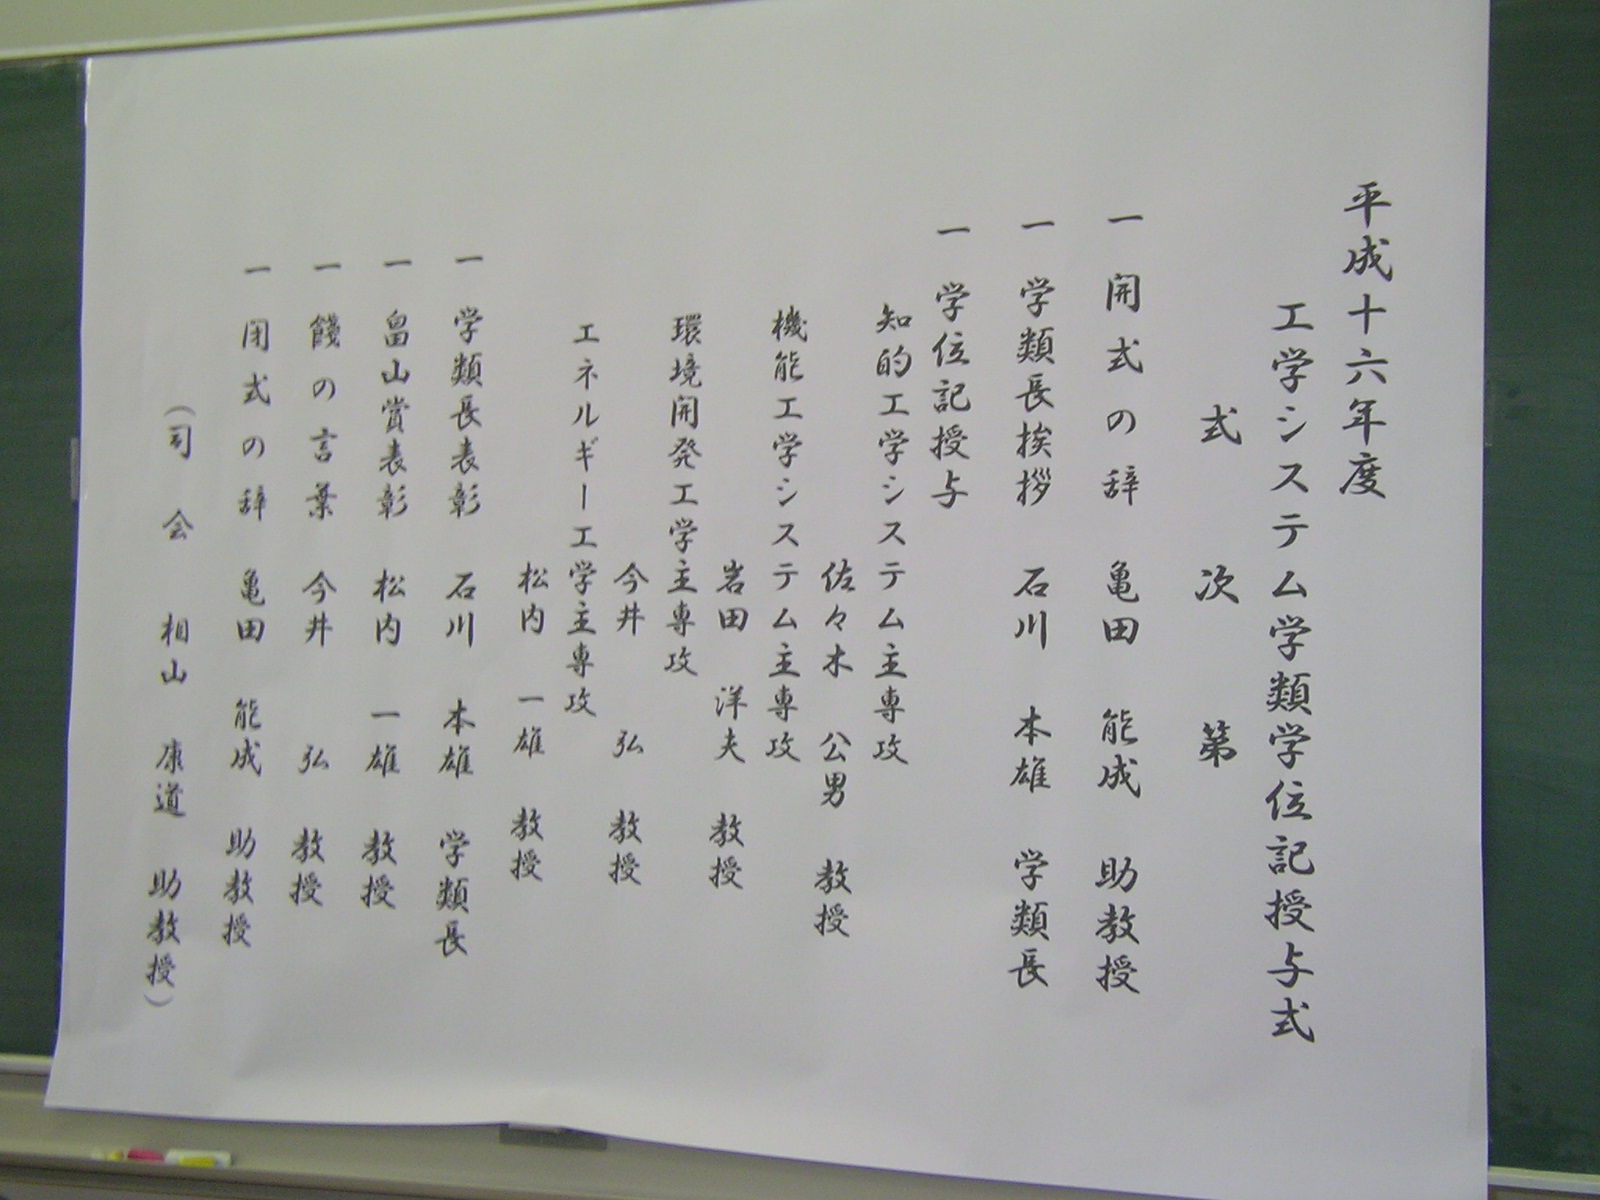 平成十六年度
工学システム学類学位記授与式
式次第
一 開式の辞 亀田 能成 助教授
一 学類長挨拶 石川 本雄 学類長
一 学位記授与
知的工学システム主専攻
佐々木 公男 教授
機能工学システム主専攻
岩田 洋夫 教授
環境開発工学主専攻
今井 弘 教授
エネルギー工学主専攻
松内 一雄 教授
一 学類長表彰 石川 本雄 学類長
一 畠山賞表彰 松内 一雄 教授
一 餞の言葉 今井 弘 教授
一 閉式の辞 亀田 能成 助教授
(司会 相山 康道 助教授)